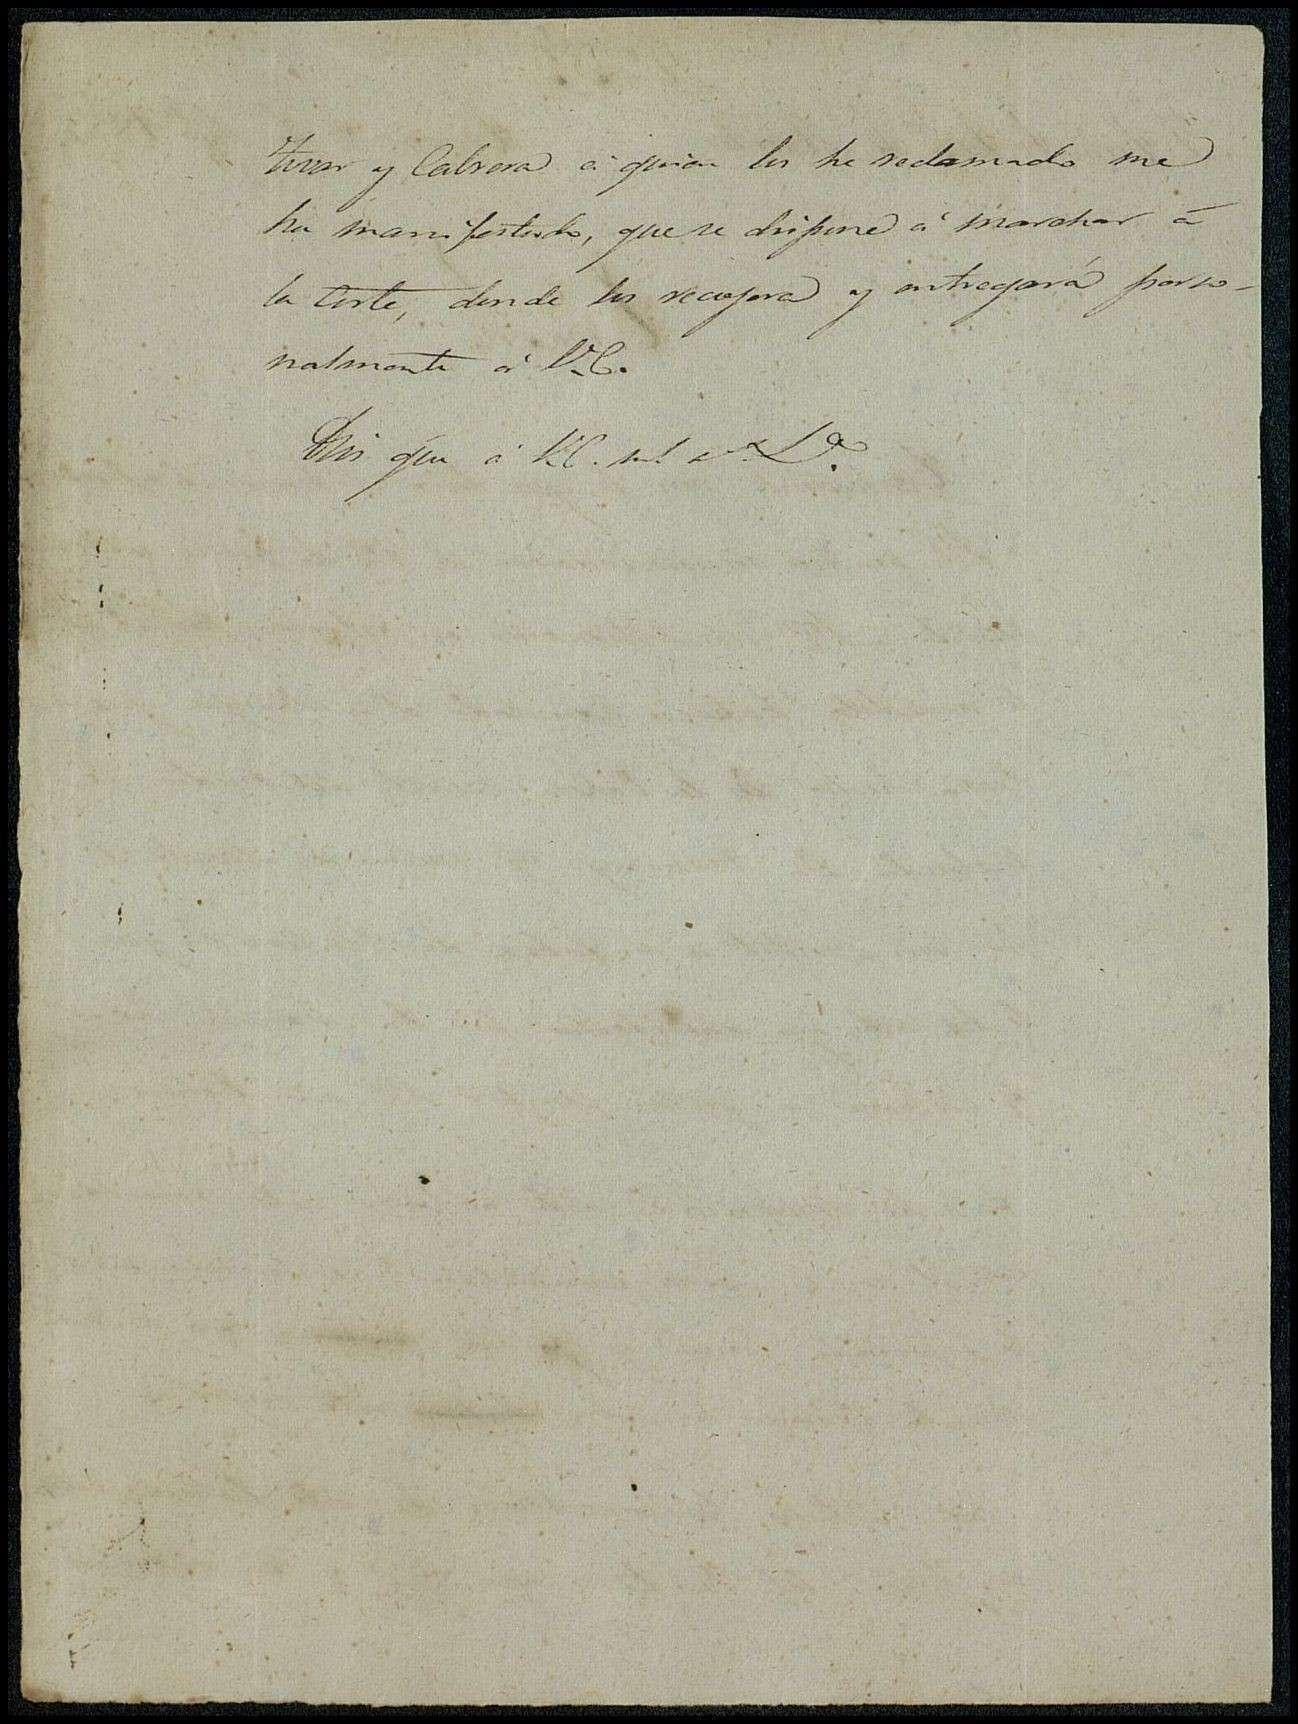 Tovar y Cabrera á quien los he reclamado me
ha manifestado, que se dispone á marchar á
la Corte, donde los recogera y entregará perso-
nalmente á V.E.
Dios gue á V.E. ms. as. La